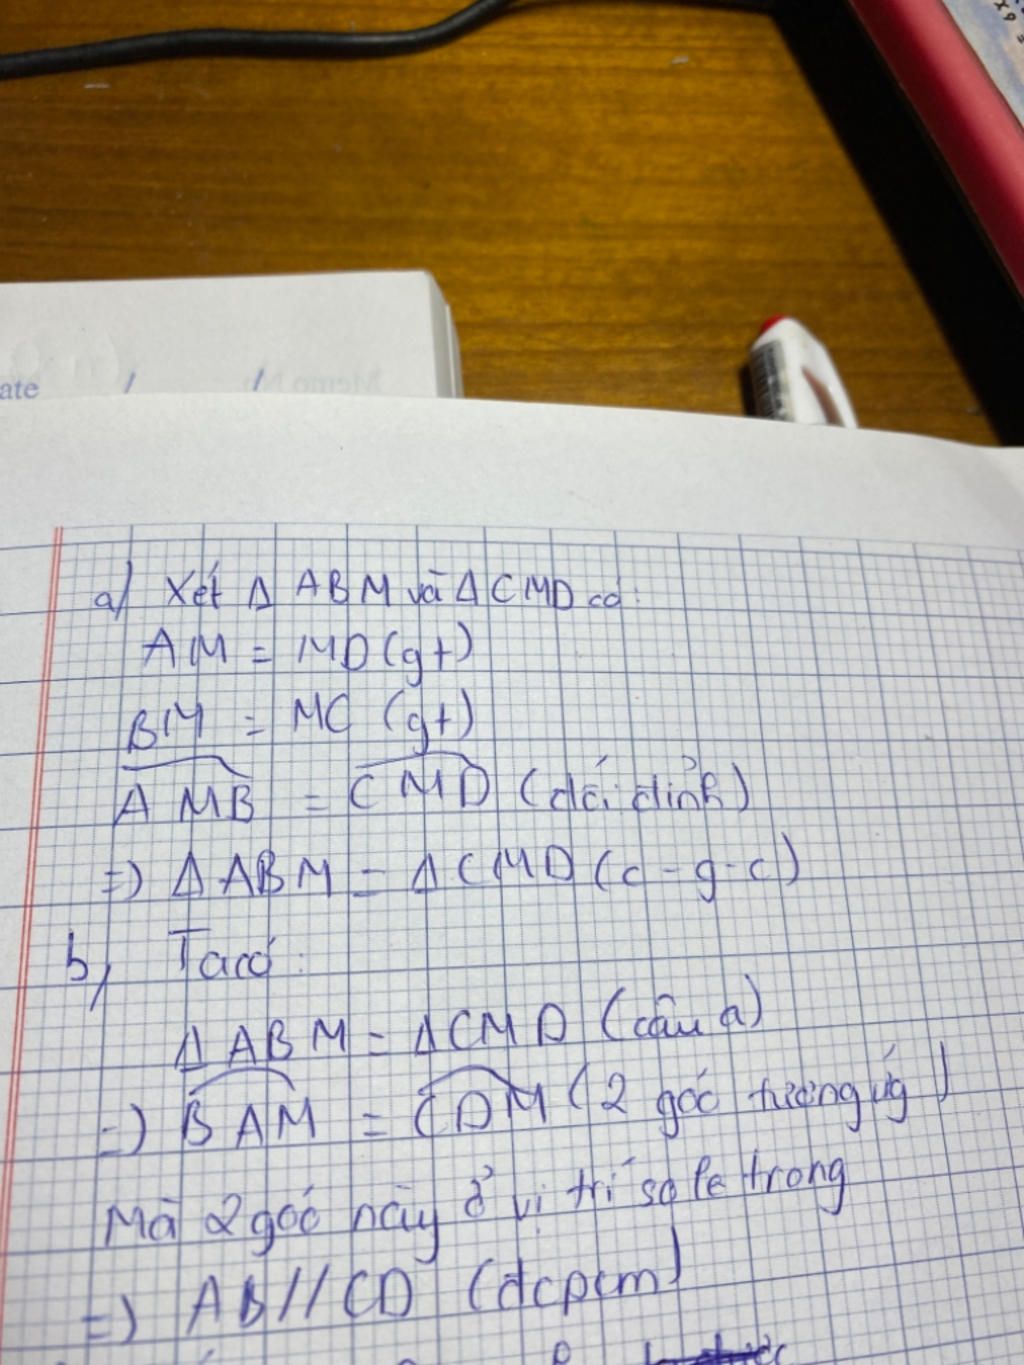 x9 =
ate / / Memo No
a) Xét Δ ABM và Δ CMD có:
AM = MD (gt)
BM = MC (gt)
AMB = CMD (đối đỉnh)
=) Δ ABM = Δ CMD (c - g - c)
b, Ta có:
Δ ABM = Δ CMD (câu a)
=) BAM = CDM (2 góc tương ứg)
Mà 2 góc này ở vị trí so le trong
=) AB // CD (đcpcm)